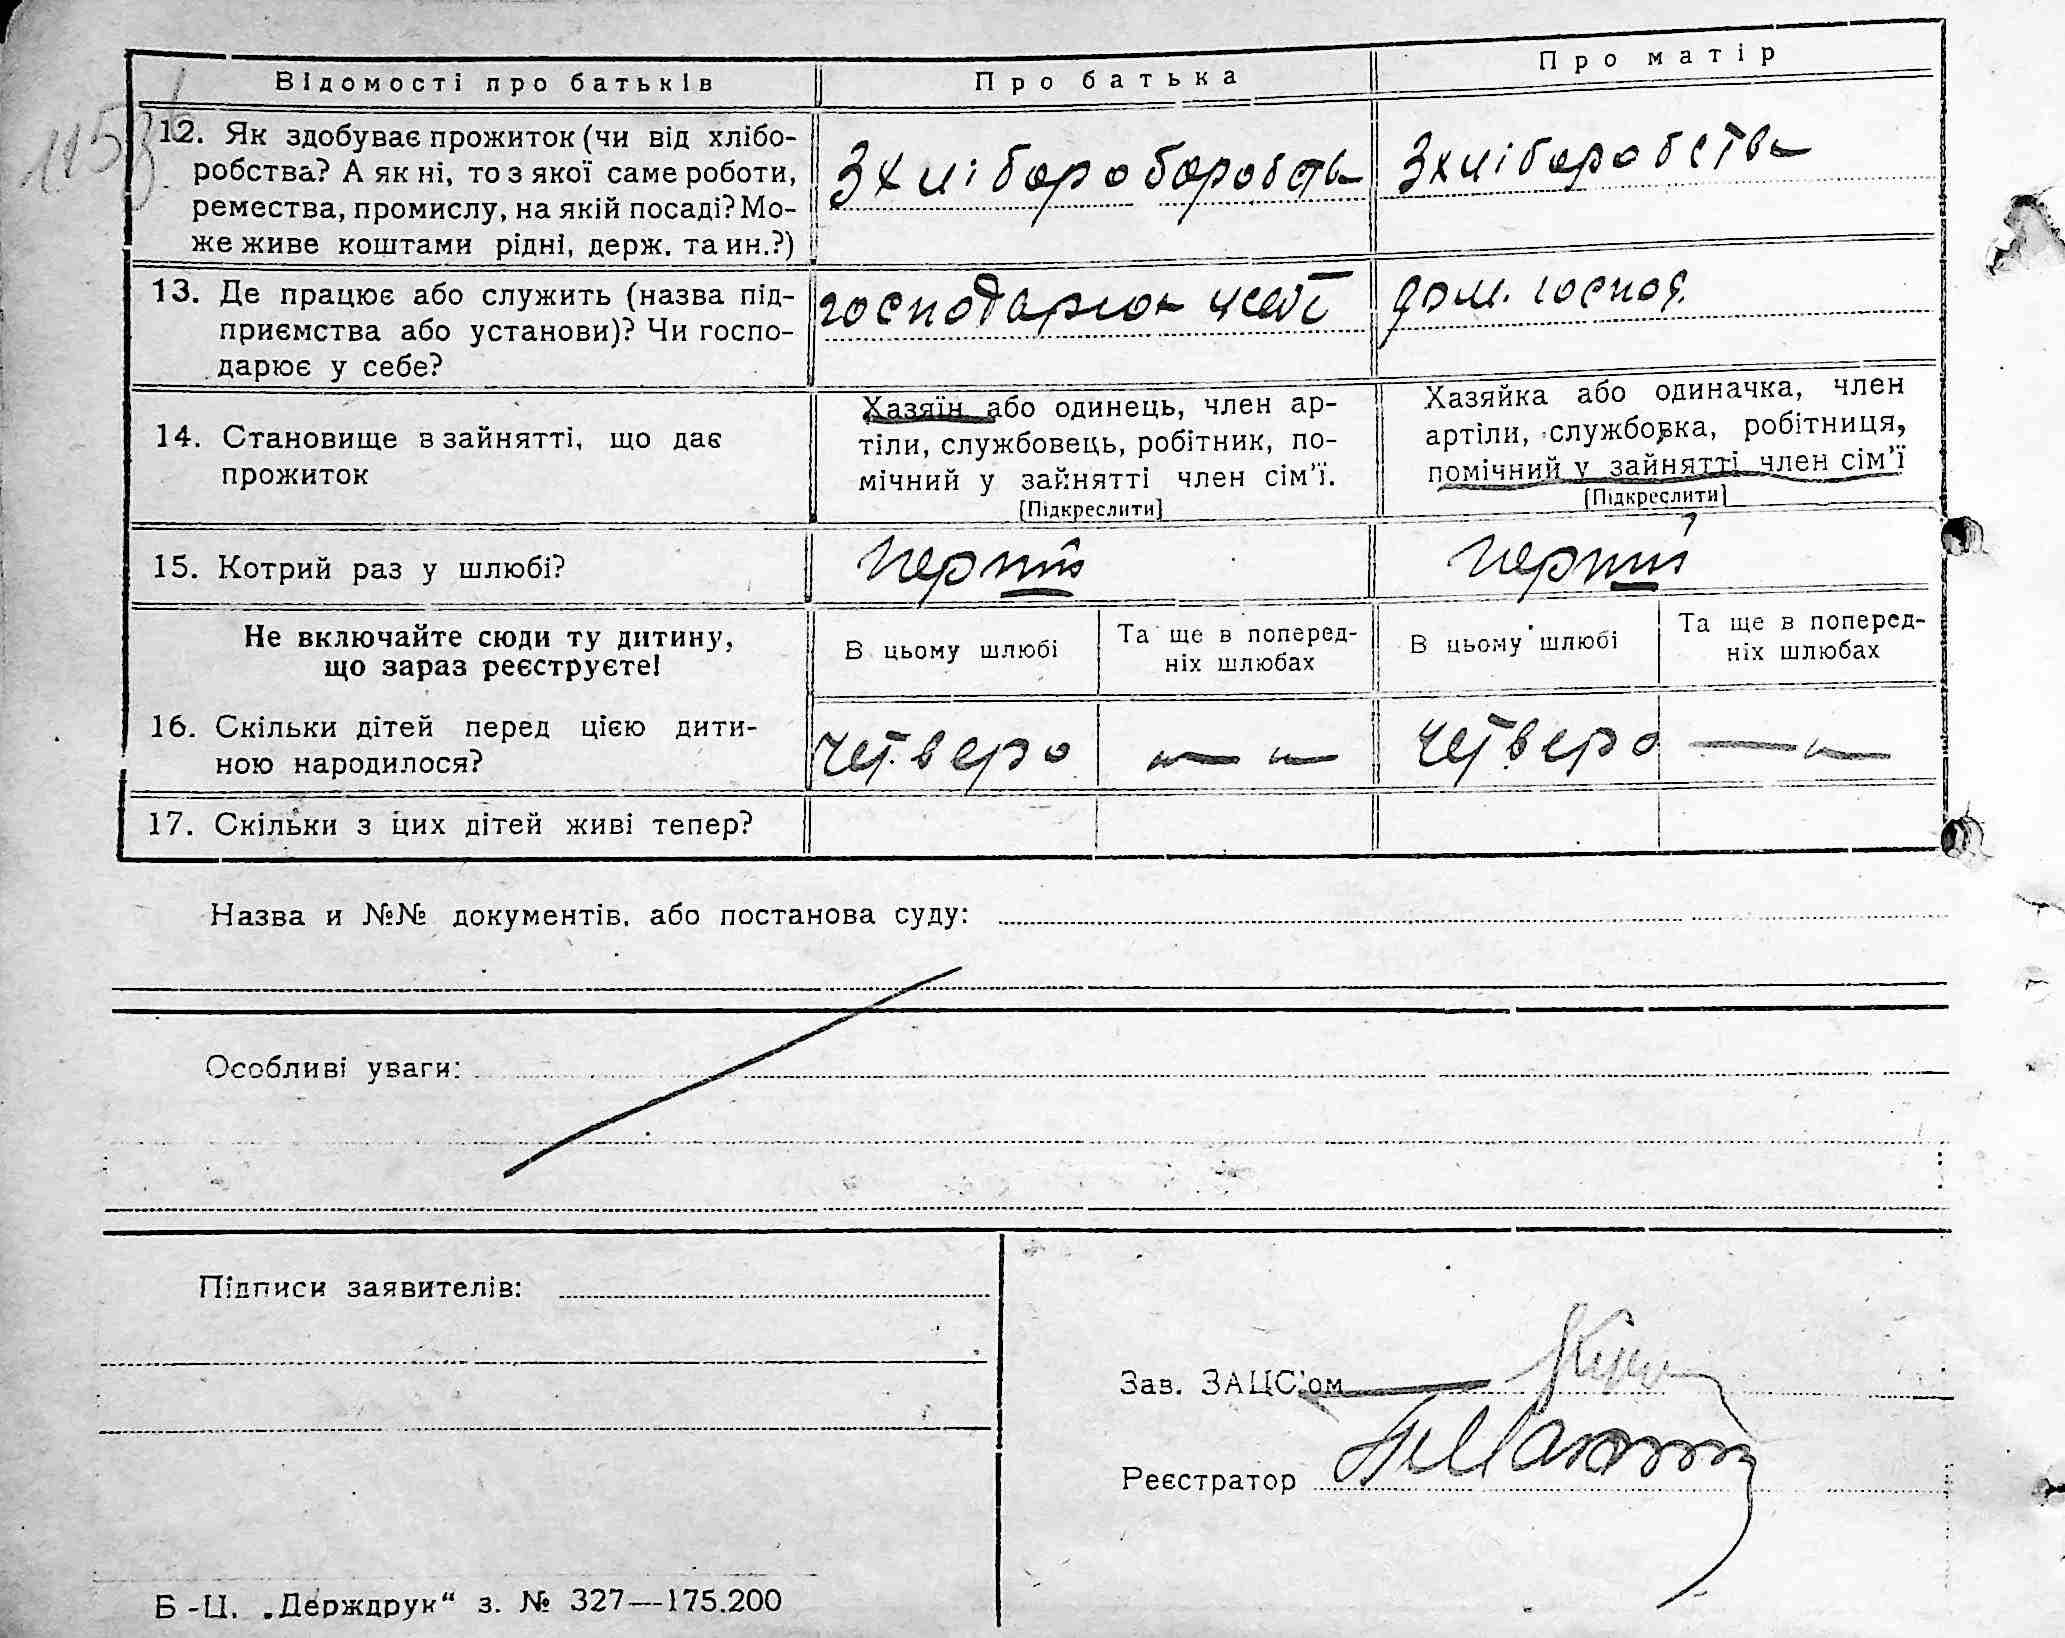 Відомості про батьків
Про батька
Про матір
12. Як здобуває прожиток (чи від хлібо-
робства? А як ні, то з якої саме роботи,
ремества, промислу, на якій посаді? Мо-
же живе коштами рідні, держ. та ин.?)
З хліборо
З хліборобства
13. Де працює або служить (назва під-
приємства або установи)? Чи госпо-
дарює у себе?
господарює
дом. господ.
14. Становище в зайнятті, що дає
прожиток
Хазяїн або одинець, член ар-
тіли, службовець, робітник, по-
мічний у зайнятті член сім'ї.
[Підкреслити]
Хазяйка або одиначка, член
артіли, службовка, робітниця,
помічний у зайнятті член сім'ї
[Підкреслити]
15. Котрий раз у шлюбі?
перший
перший
Не включайте сюди ту дитину,
що зараз реєструєте!
В цьому шлюбі
Та ще в поперед-
ніх шлюбах
В цьому шлюбі
Та ще в поперед-
ніх шлюбах
16. Скільки дітей перед цією дити-
ною народилося?
четверо
четверо
17. Скільки з цих дітей живі тепер?
Назва и №№ документів, або постанова суду:
Особливі уваги:
Підписи заявителів:
Зав. ЗАЦС'ом
Реєстратор
Б-Ц. „Держдрук“ з. № 327—175.200